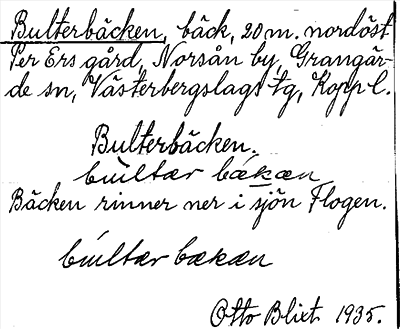 Bulterbäcken, bäck, 20 m. nordöst
Per Ers gård, Norsån by, Grangär-
de sn, Västerbergslags tg, Kopp l.
Bulterbäcken.
bùltær bækæn
Bäcken rinner ner i sjön Flogen.
bùltær bækæn
Otto Blixt 1935.